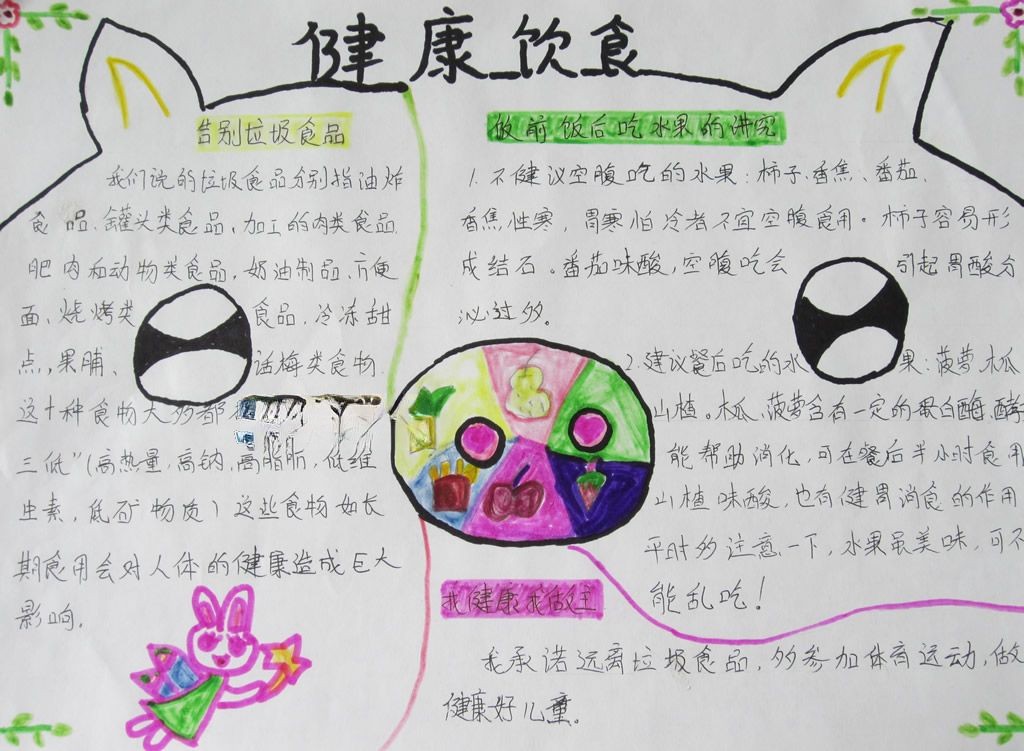 健康饮食
告别垃圾食品
我们说的垃圾食品分别指油炸
食品、罐头类食品,加工的肉类食品
肥肉和动物类食品,奶油制品、方便
面、烧烤类食品,冷冻甜
点,果脯、话梅类食物.
这十种食物大多都
三低”(高热量,高钠,高脂肪,低维
生素,低矿物质)这些食物如长
期食用会对人体的健康造成巨大
影响.
饭前饭后吃水果的讲究
1.不健议空腹吃的水果:柿子、香焦、番茄、
香焦性寒,胃寒怕冷者不宜空腹食用。柿子容易形
成结石。番茄味酸,空腹吃会引起胃酸分
泌过多。
2.建议餐后吃的水果:菠萝、木瓜
山楂。木瓜、菠萝含有一定的蛋白酶,酵
能帮助消化,可在餐后半小时食用
山楂味酸,也有健胃消食的作用
平时多注意一下,水果虽美味,可不
能乱吃!
我健康我做主
我承诺远离垃圾食品,多参加体育运动,做
健康好儿童。